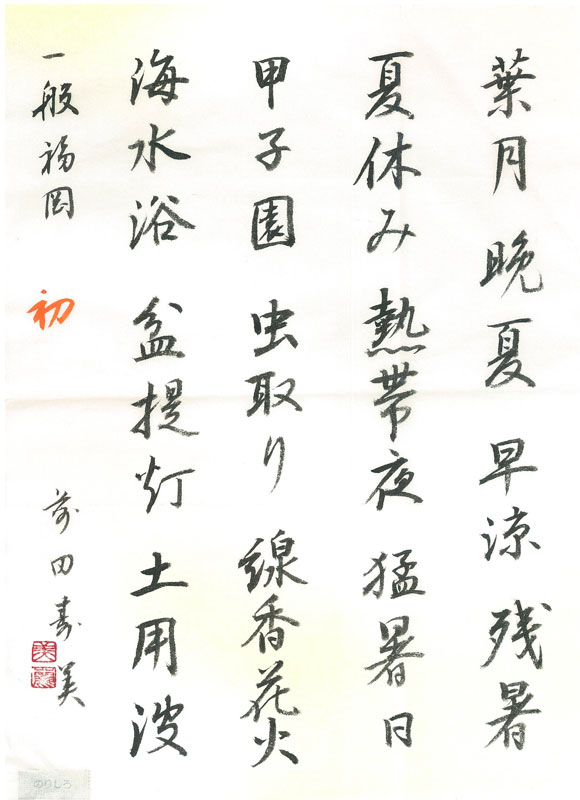 葉月 晩夏 早涼 残暑
夏休み 熱帯夜 猛暑日
甲子園 虫取り 線香花火
海水浴 盆提灯 土用波
一般福岡 初 前田寿美
のりしろ